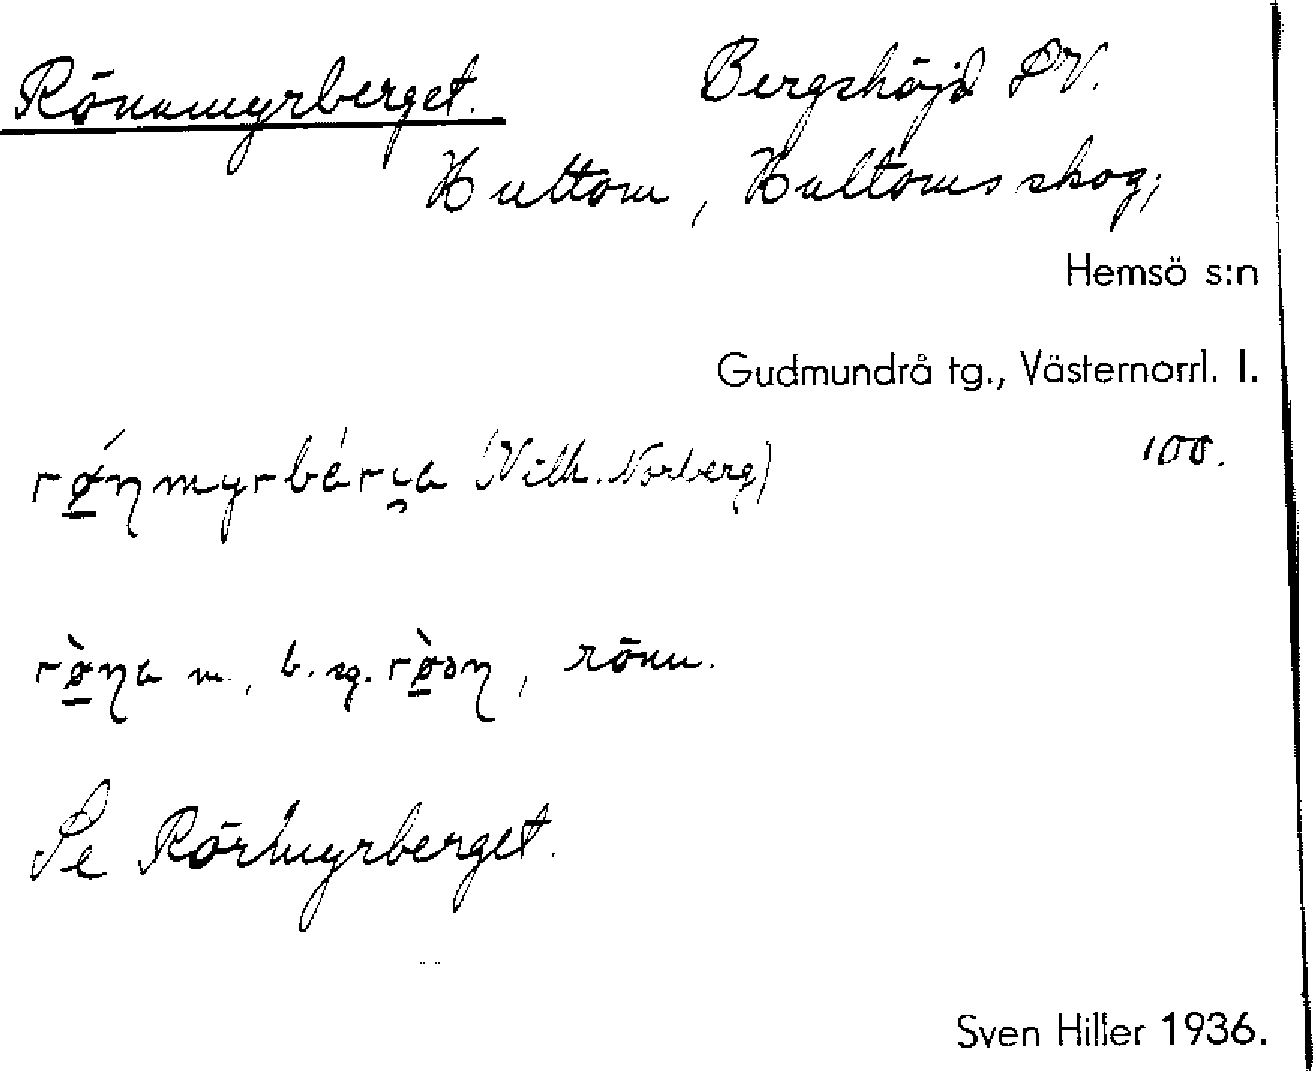 Rönnmyrberget. Bergshöjd SV.
Hultom, Hultoms skog,
Hemsö s:n
Gudmundrå tg., Västernorrl. l.
(Vilh. Norberg) 100.
m., b. sg. , rönn.
Se Rörmyrberget.
Sven Hiller 1936.